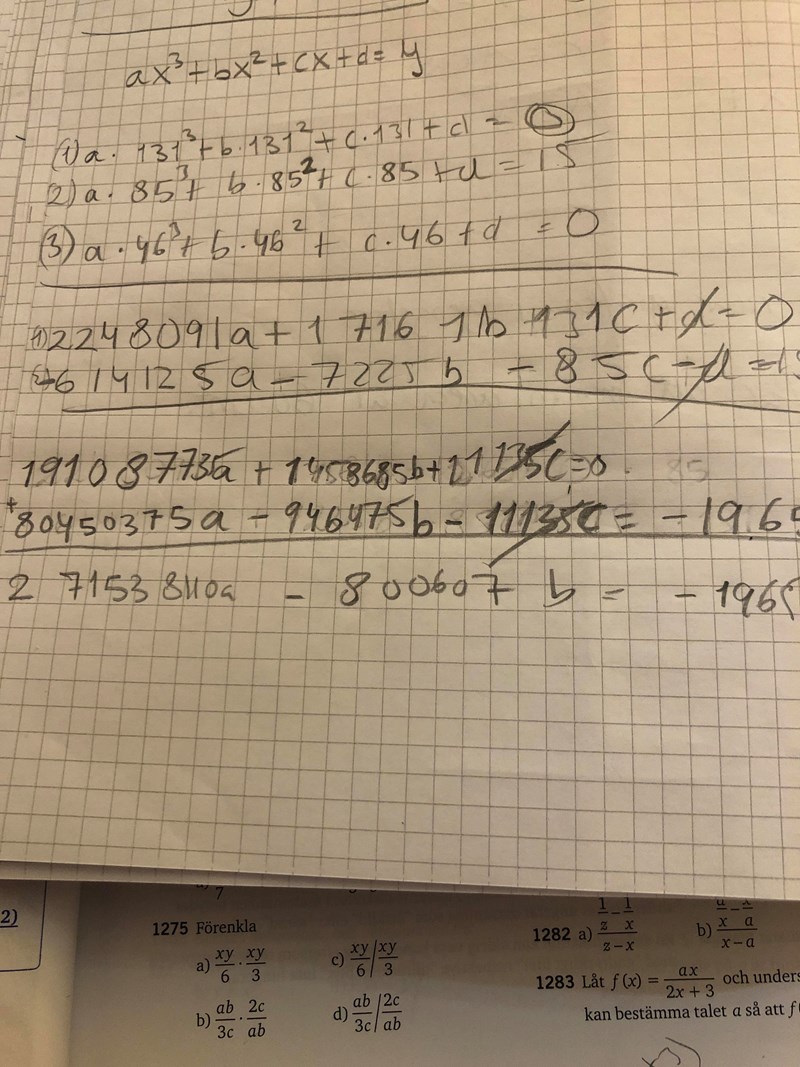 ax³+bx²+cx+d=y
(1) a·131³+b·131²+c·131+d=0
2) a·85³+b·85²+c·85+d=15
(3) a·46³+b·46²+c·46+d=0
(1) 2248091a+17161b+131c+d=0
614125a-7225b-85c-d=
191087735a+1458685b+11135c=0
+80450375a-946475b-11135c=-1965
271538110a-800607b=-1965
2)
7
1275 Förenkla
a) xy/6 · xy/3
c) xy/6 / xy/3
b) ab/3c · 2c/ab
d) ab/3c / 2c/ab
1282 a) (1/z - 1/x)/(z-x)
b) x a
x-a
1283 Låt f(x) = ax/(2x+3) och unders
kan bestämma talet a så att f(